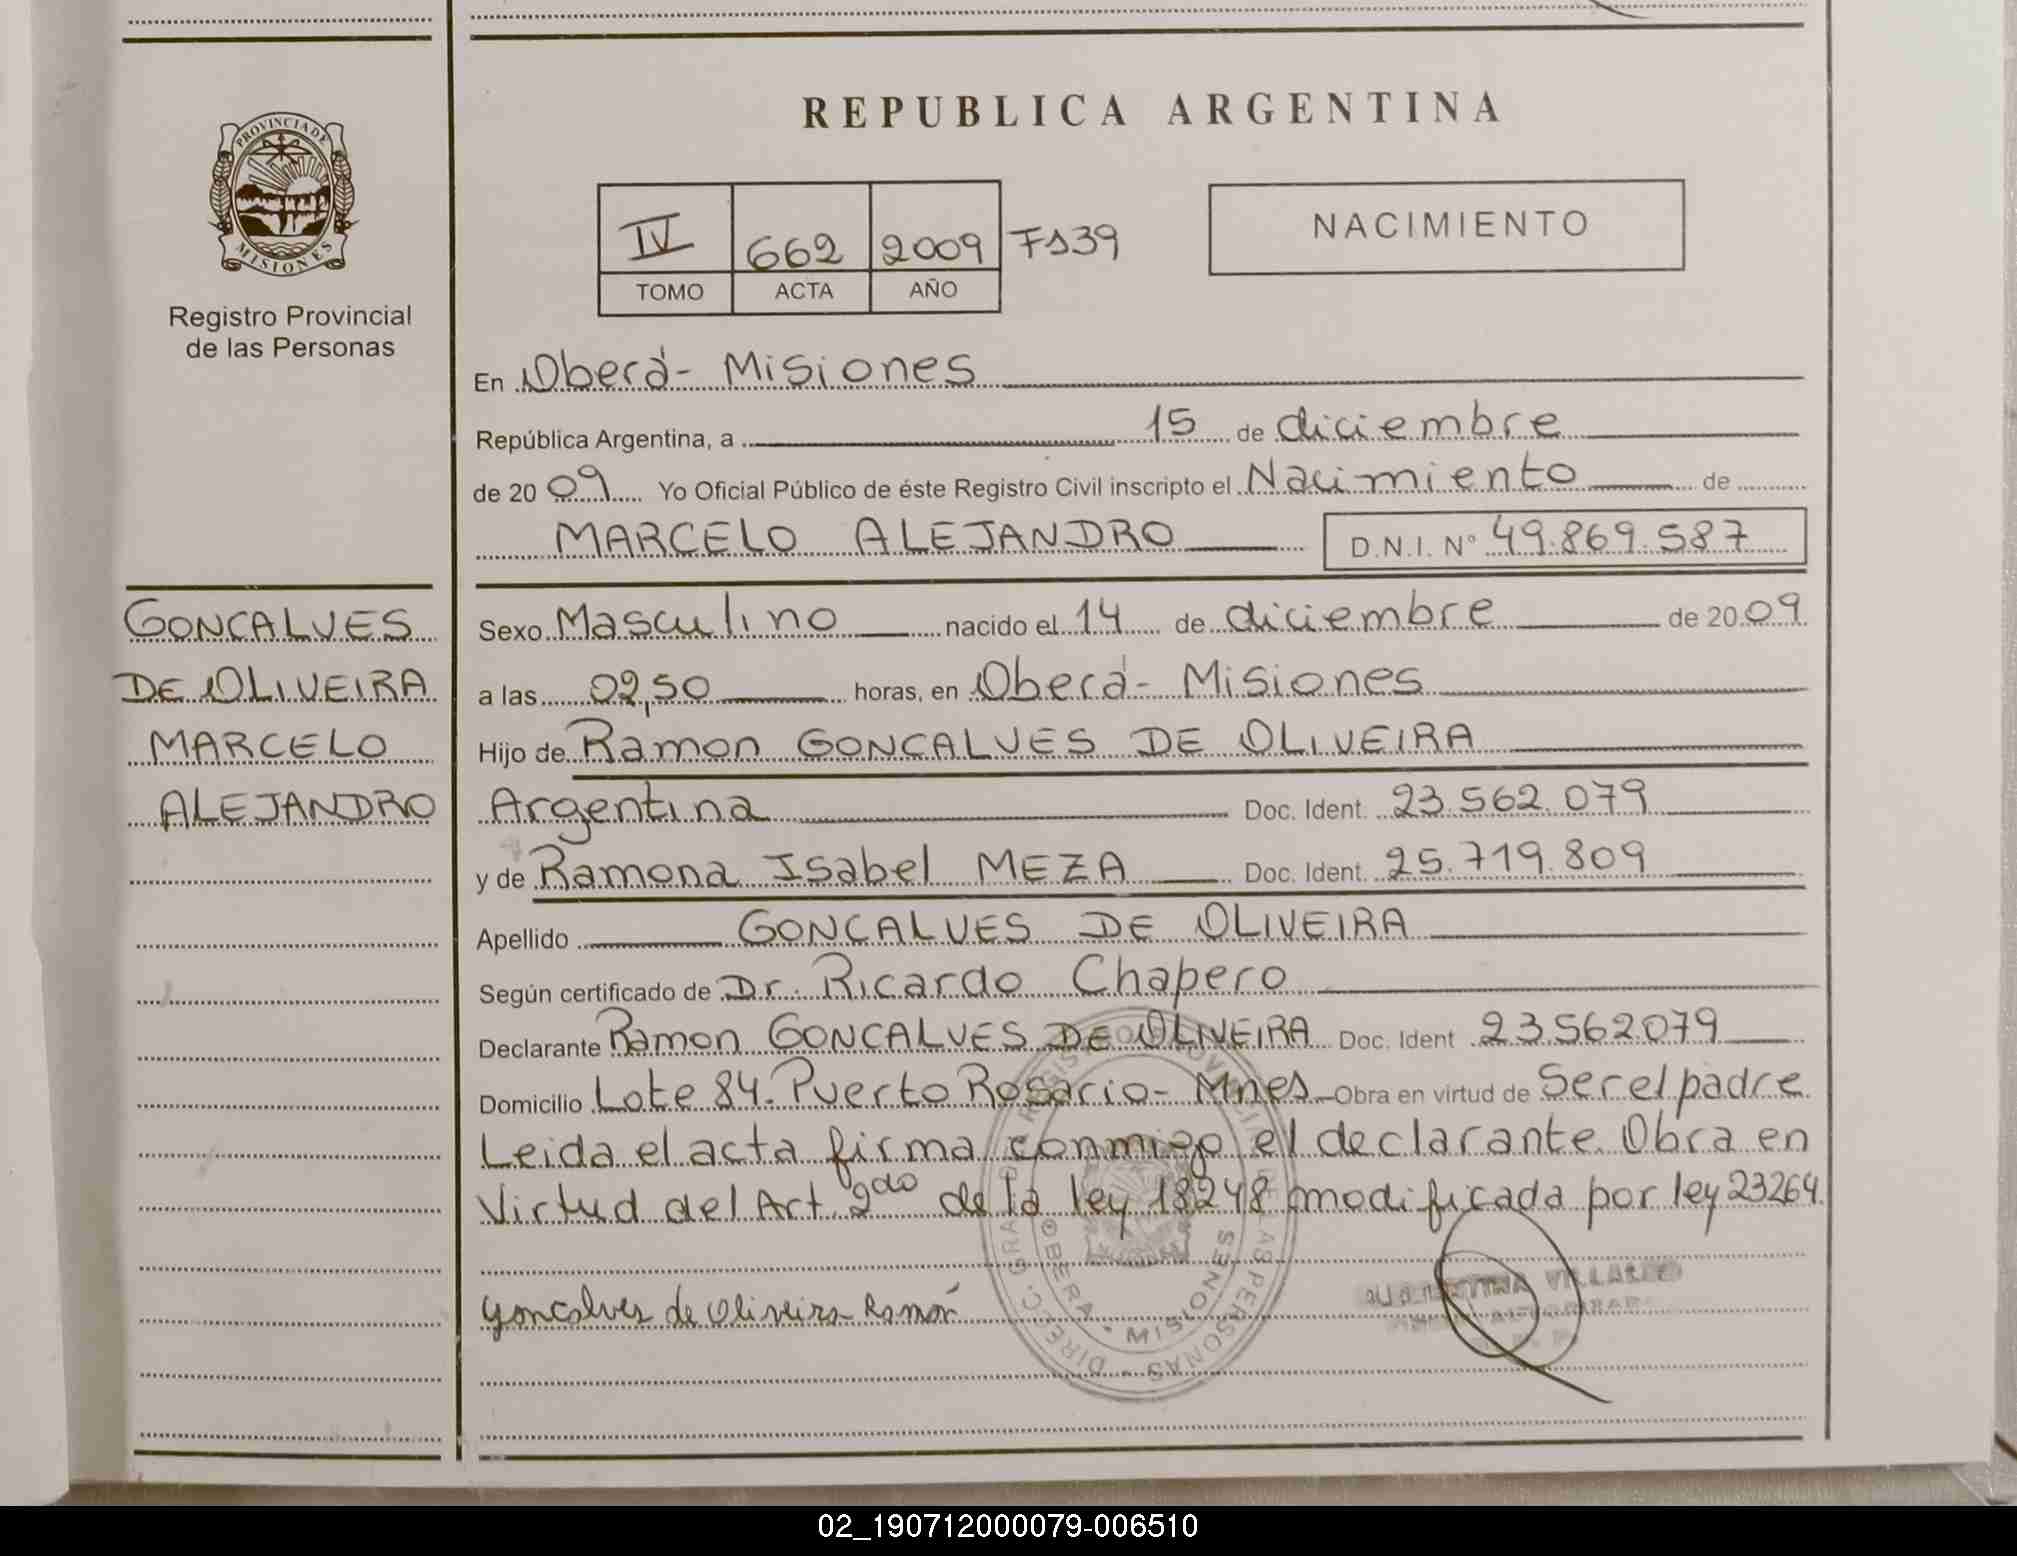 REPUBLICA ARGENTINA
PROVINCIA DE
MISIONES
Registro Provincial
de las Personas
IV 662 2009 Fs39
TOMO ACTA AÑO
NACIMIENTO
En Oberá- Misiones
República Argentina, a 15 de diciembre
de 2009 Yo Oficial Público de éste Registro Civil inscripto el Nacimiento de
MARCELO ALEJANDRO D.N.I. Nº 49.869.587
GONCALVES
DE OLIVEIRA
MARCELO
ALEJANDRO
Sexo Masculino nacido el 14 de diciembre de 2009
a las 02,50 horas, en Oberá- Misiones
Hijo de Ramon GONCALVES DE OLIVEIRA
Argentina Doc. Ident. 23.562.079
y de Ramona Isabel MEZA Doc. Ident. 25.719.809
Apellido GONCALVES DE OLIVEIRA
Según certificado de Dr. Ricardo Chapero
Declarante Ramon GONCALVES DE OLIVEIRA Doc. Ident 23562079
Domicilio Lote 84. Puerto Rosario- Mnes Obra en virtud de Ser el padre
Leida el acta firma conmigo el declarante. Obra en
Virtud del Art 2do de la ley 18248 modificada por ley 23264.
Goncalves de Oliveira Ramón
OBERA - MISIONES
02_190712000079-006510